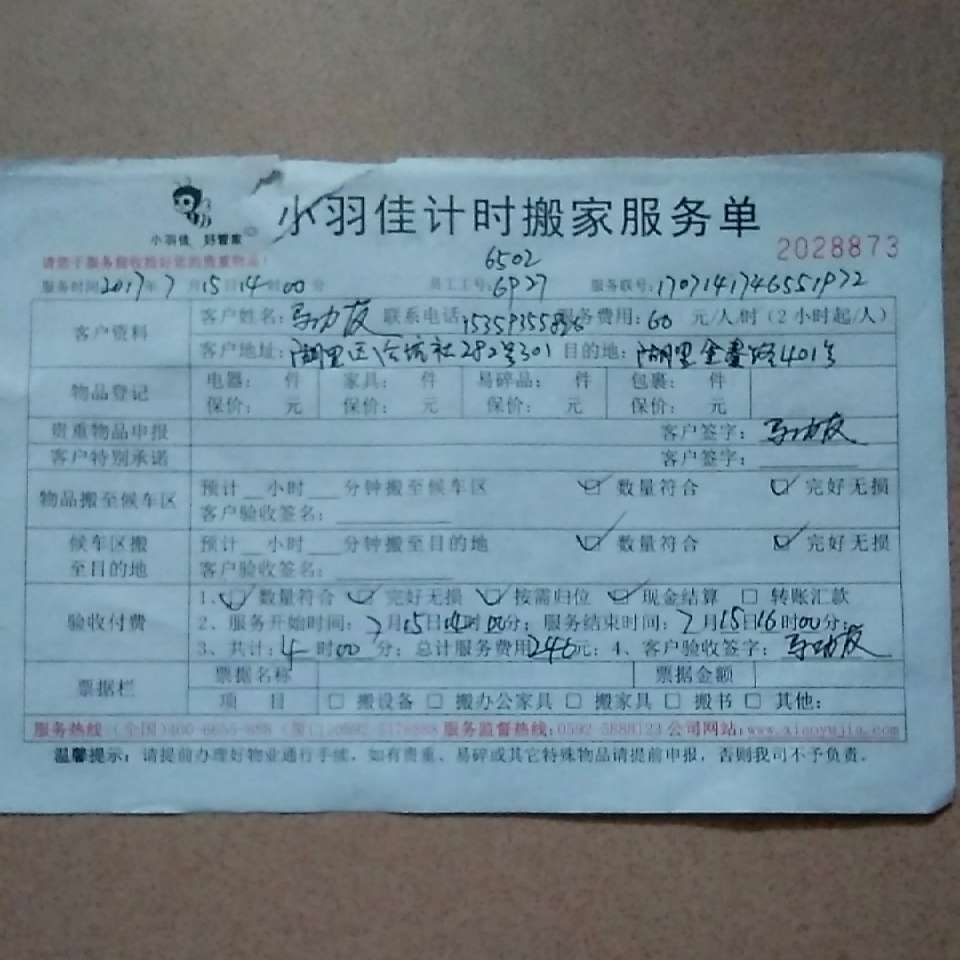 小羽佳 好管家
小羽佳计时搬家服务单
2028873
请您于服务前收拾好您的贵重物品!
6502
服务时间2017年7月15日14时00分 员工工号:6927 服务联号:17071417465519722
客户资料
客户姓名: 联系电话: 服务费用:60元/人/时(2小时起/人)
客户地址:湖里区 社282号301 目的地:湖里金 路401号
物品登记
电器: 件 家具: 件 易碎品: 件 包裹: 件
保价: 元 保价: 元 保价: 元 保价: 元
贵重物品申报 客户签字:
客户特别承诺 客户签字:
物品搬至候车区
预计__小时___分钟搬至候车区 数量符合 完好无损
客户验收签名:
候车区搬至目的地
预计__小时___分钟搬至目的地 数量符合 完好无损
客户验收签名:
验收付费
1、数量符合 完好无损 按需归位 现金结算 转账汇款
2、服务开始时间:7月15日14时00分;服务结束时间:7月15日16时00分;
3、共计:4时00分;总计服务费用246元;4、客户验收签字:
票据栏
票据名称 票据金额
项 目 搬设备 搬办公家具 搬家具 搬书 其他:
服务热线 (全国)400- 服务监督热线:0592-5888123 公司网站:www.xiaoyujia.com
温馨提示:请提前办理好物业通行手续,如有贵重、易碎或其它特殊物品请提前申报,否则我司不予负责。